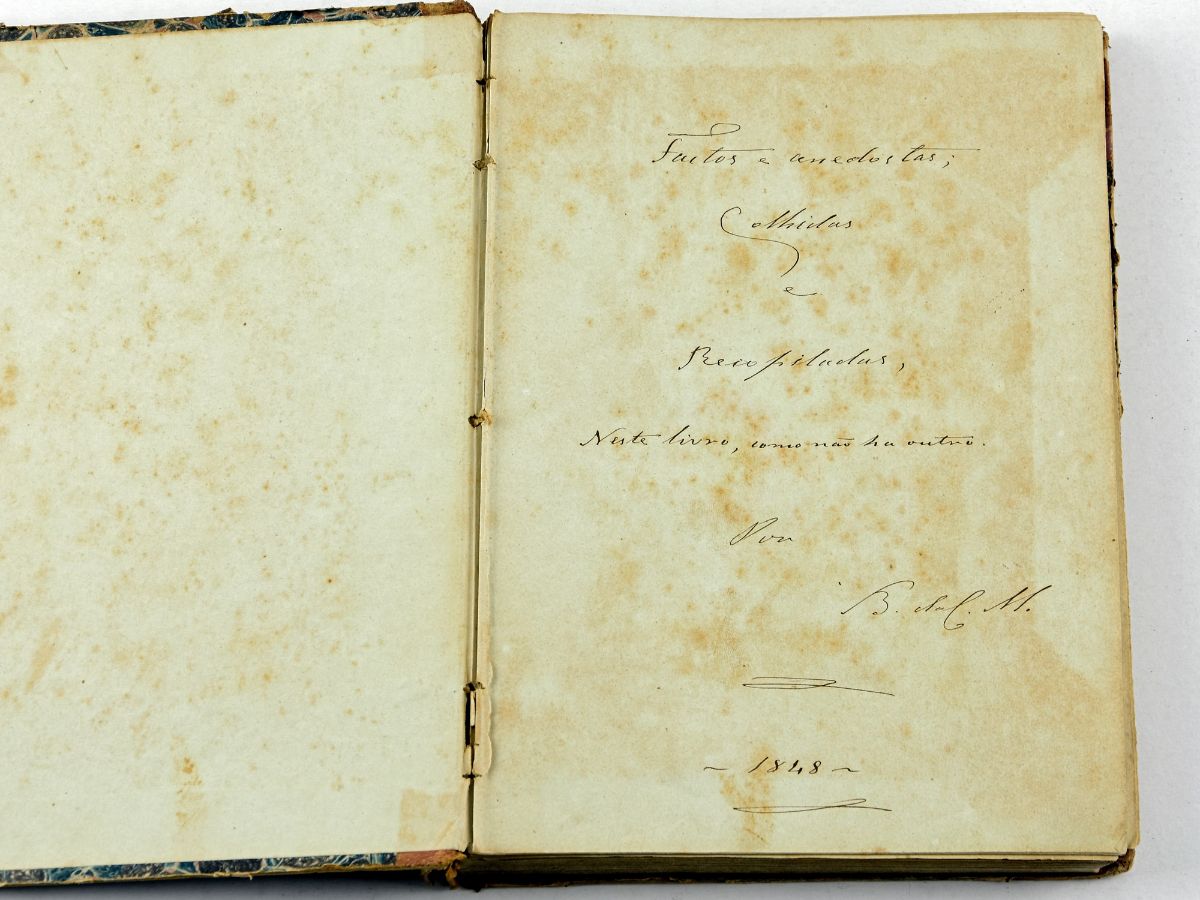 Factos e anedoctas;
Colhidas
e
Recopiladas,
Neste livro, como não ha outro.
Por
B. da C. M.
~ 1848 ~